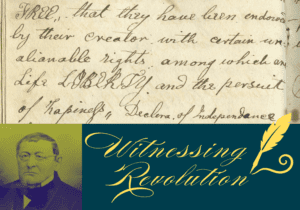 FREE,, that they have been endowed
by their creator with certain un-
alianable rights, among which are
Life LIBERTY and the persuit
of Hapiness,, Declara. of Independance
Witnessing
Revolution